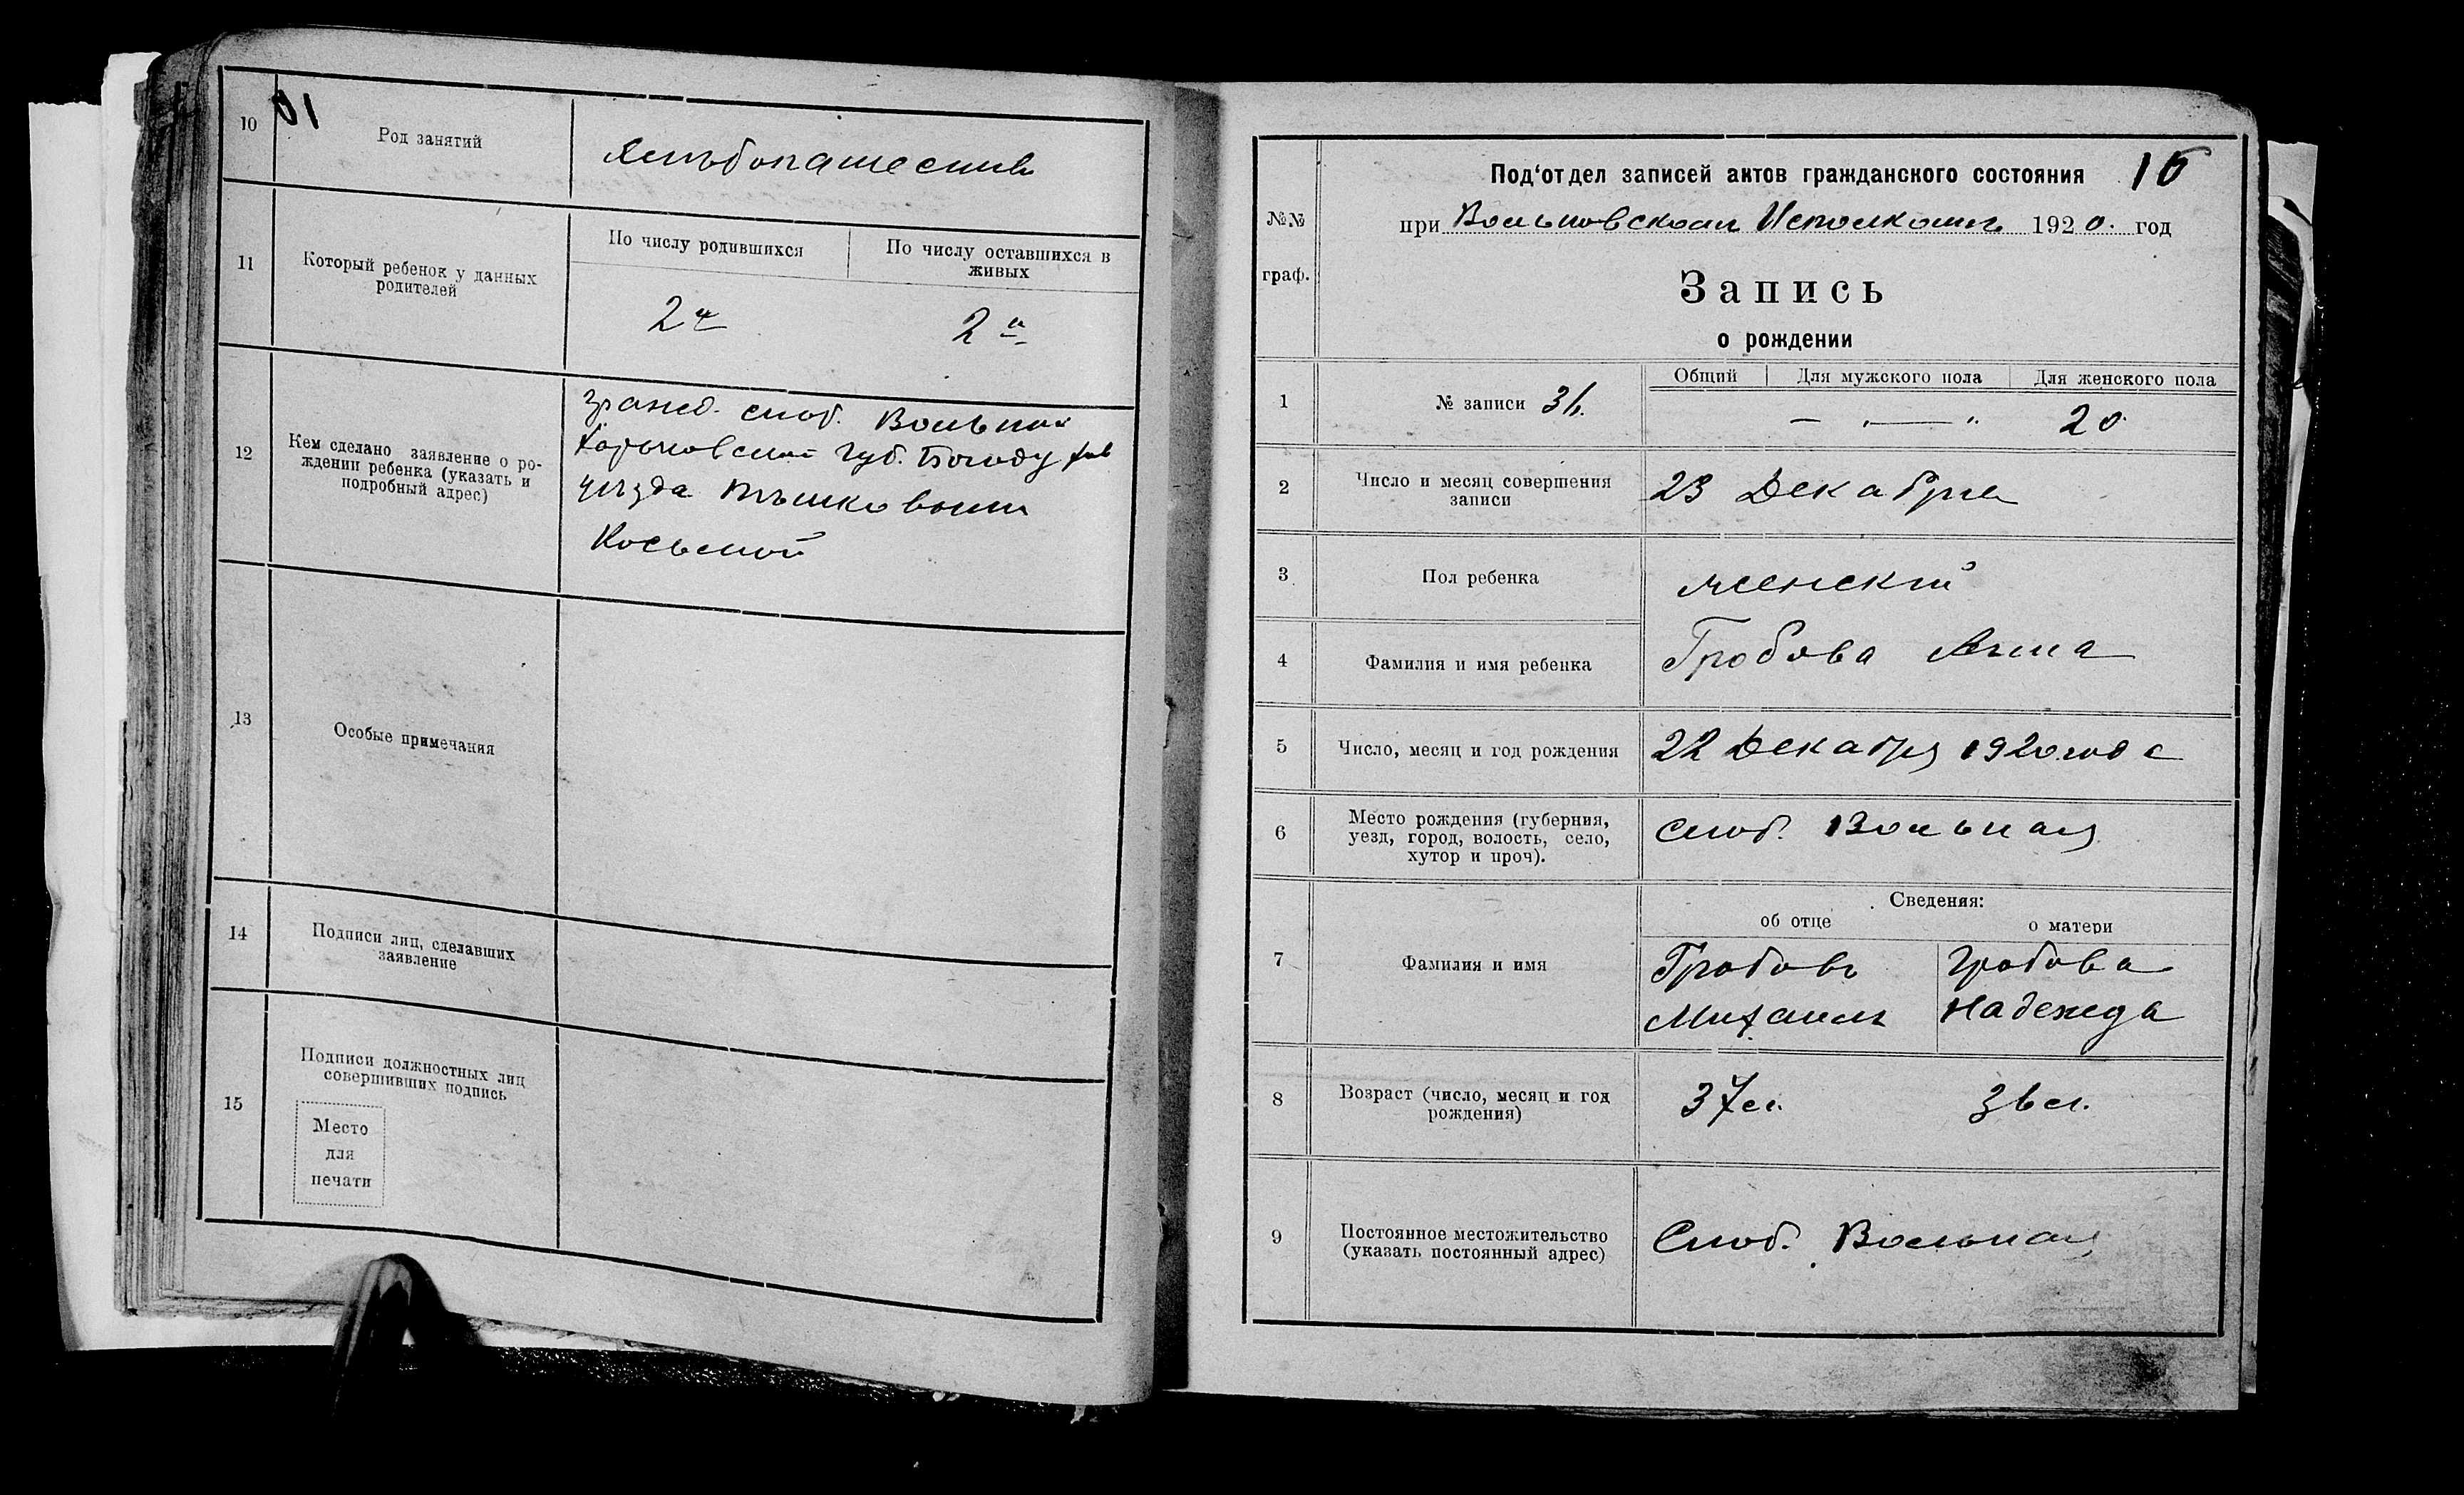 10
Род занятий
Хлѣбопашество
11
Который ребенок у данных
родителей
По числу родившихся
По числу оставшихся в
живых
2й
2й
12
Кем сделано заявление о ро-
ждении ребенка (указать и
подробный адрес)
гражд. слоб. Вольной
Харьковской губ. Богодухов
уѣзда
13
Особые примечания
14
Подписи лиц, сделавших
заявление
15
Подписи должностных лиц
совершивших подпись
Место
для
печати
№№
граф.
Под‘отдел записей актов гражданского состояния
при Вольновском Исполкомѣ 1920. год
Запись
о рождении
1
№ записи
Общий
Для мужского пола
Для женского пола
20
2
Число и месяц совершения
записи
23 Декабря
3
Пол ребенка
женский
4
Фамилия и имя ребенка
Гробова Анна
5
Число, месяц и год рождения
22 Декабря 1920 года
6
Место рождения (губерния,
уезд, город, волость, село,
хутор и проч).
слоб. Вольная
Сведения:
об отце
о матери
7
Фамилия и имя
Гробовъ
Михаилъ
Гробова
Надежда
8
Возраст (число, месяц и год
рождения)
37 л.
36 л.
9
Постоянное местожительство
(указать постоянный адрес)
Слоб. Вольная